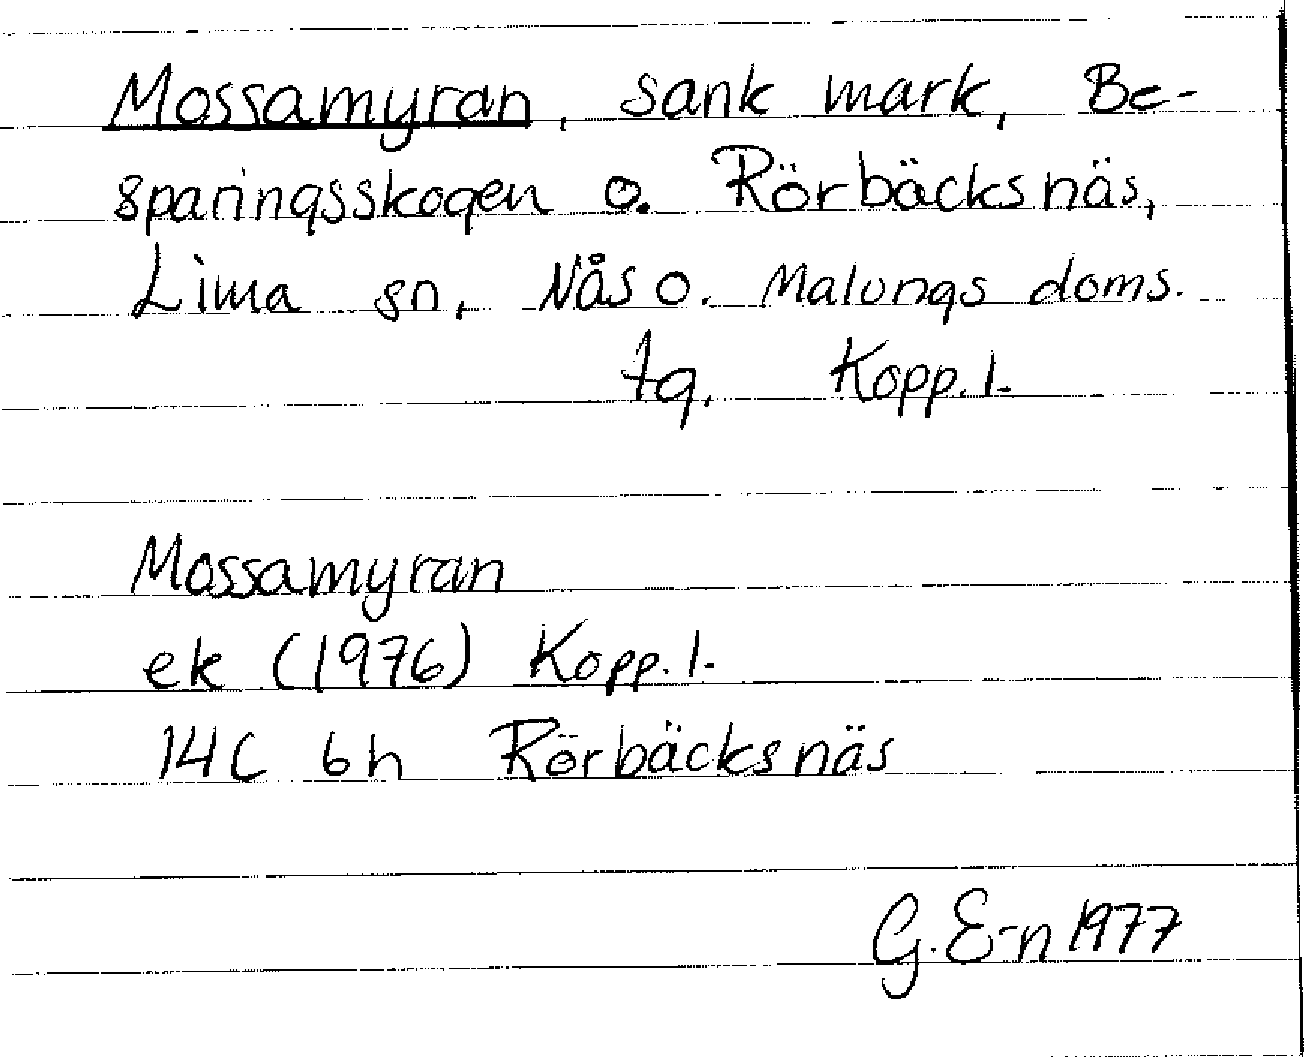 Mossamyran, sank mark, Be-
sparingsskogen o. Rörbäcksnäs,
Lima sn, Nås o. Malungs doms.
tg, Kopp. l.
Mossamyran
ek (1976) Kopp. l.
14C 6h Rörbäcksnäs
G. E-n 1977